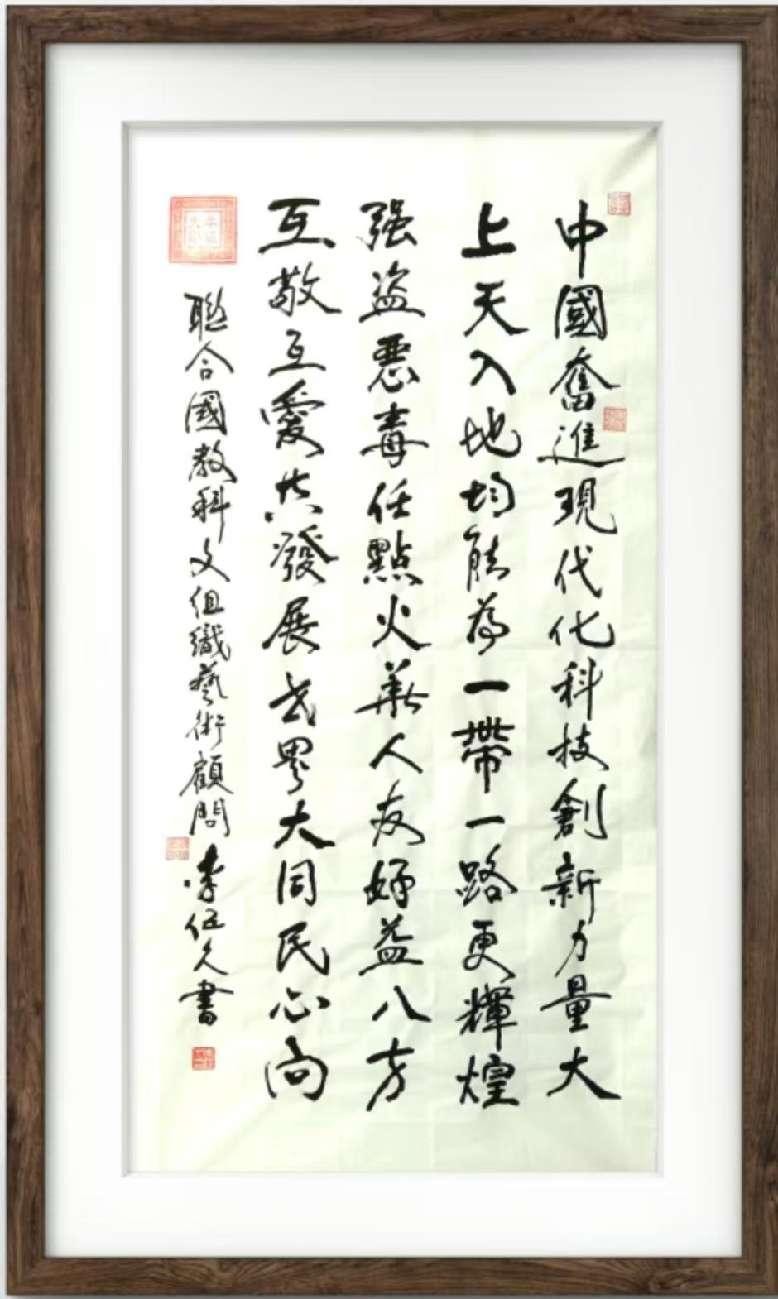 中國奮進現代化科技創新力量大
上天入地均能為一帶一路更輝煌
强盗惡毒任點火華人友好益八方
互敬互愛共發展世界大同民心向
聯合國教科文組織藝術顧問李伍久書